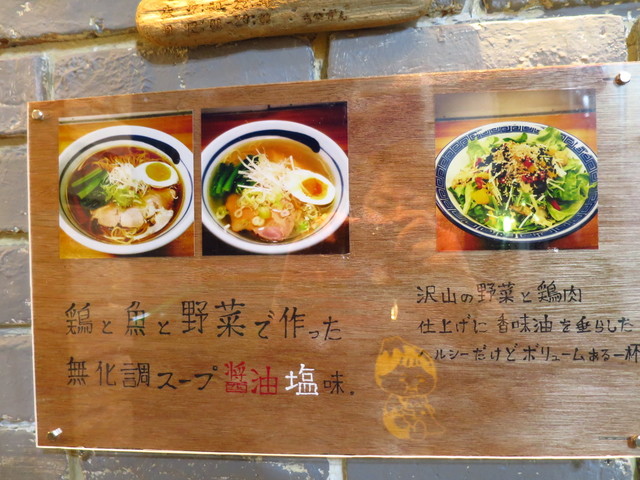 鶏と魚と野菜で作った
無化調スープ醤油塩味.
沢山の野菜と鶏肉
仕上げに香味油を垂らした
ヘルシーだけどボリュームある一杯